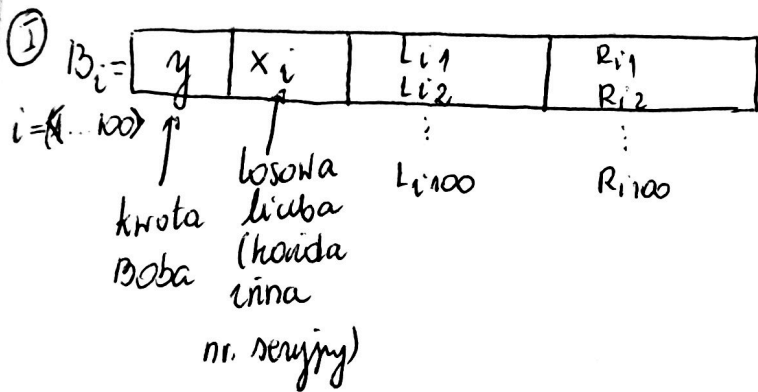 I
B_i = y x_i L_i1 R_i1
L_i2 R_i2
i = (1...100) ⋮ ⋮
L_i100 R_i100
kwota
Boba
losowa
liczba
(każda
inna
nr. seryjny)